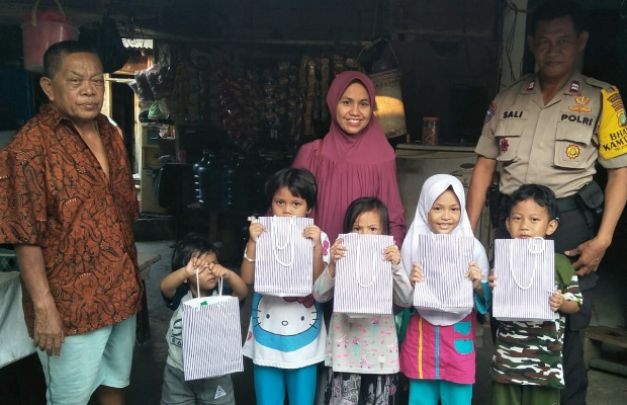 SALI
POLRI
BHA
KAM